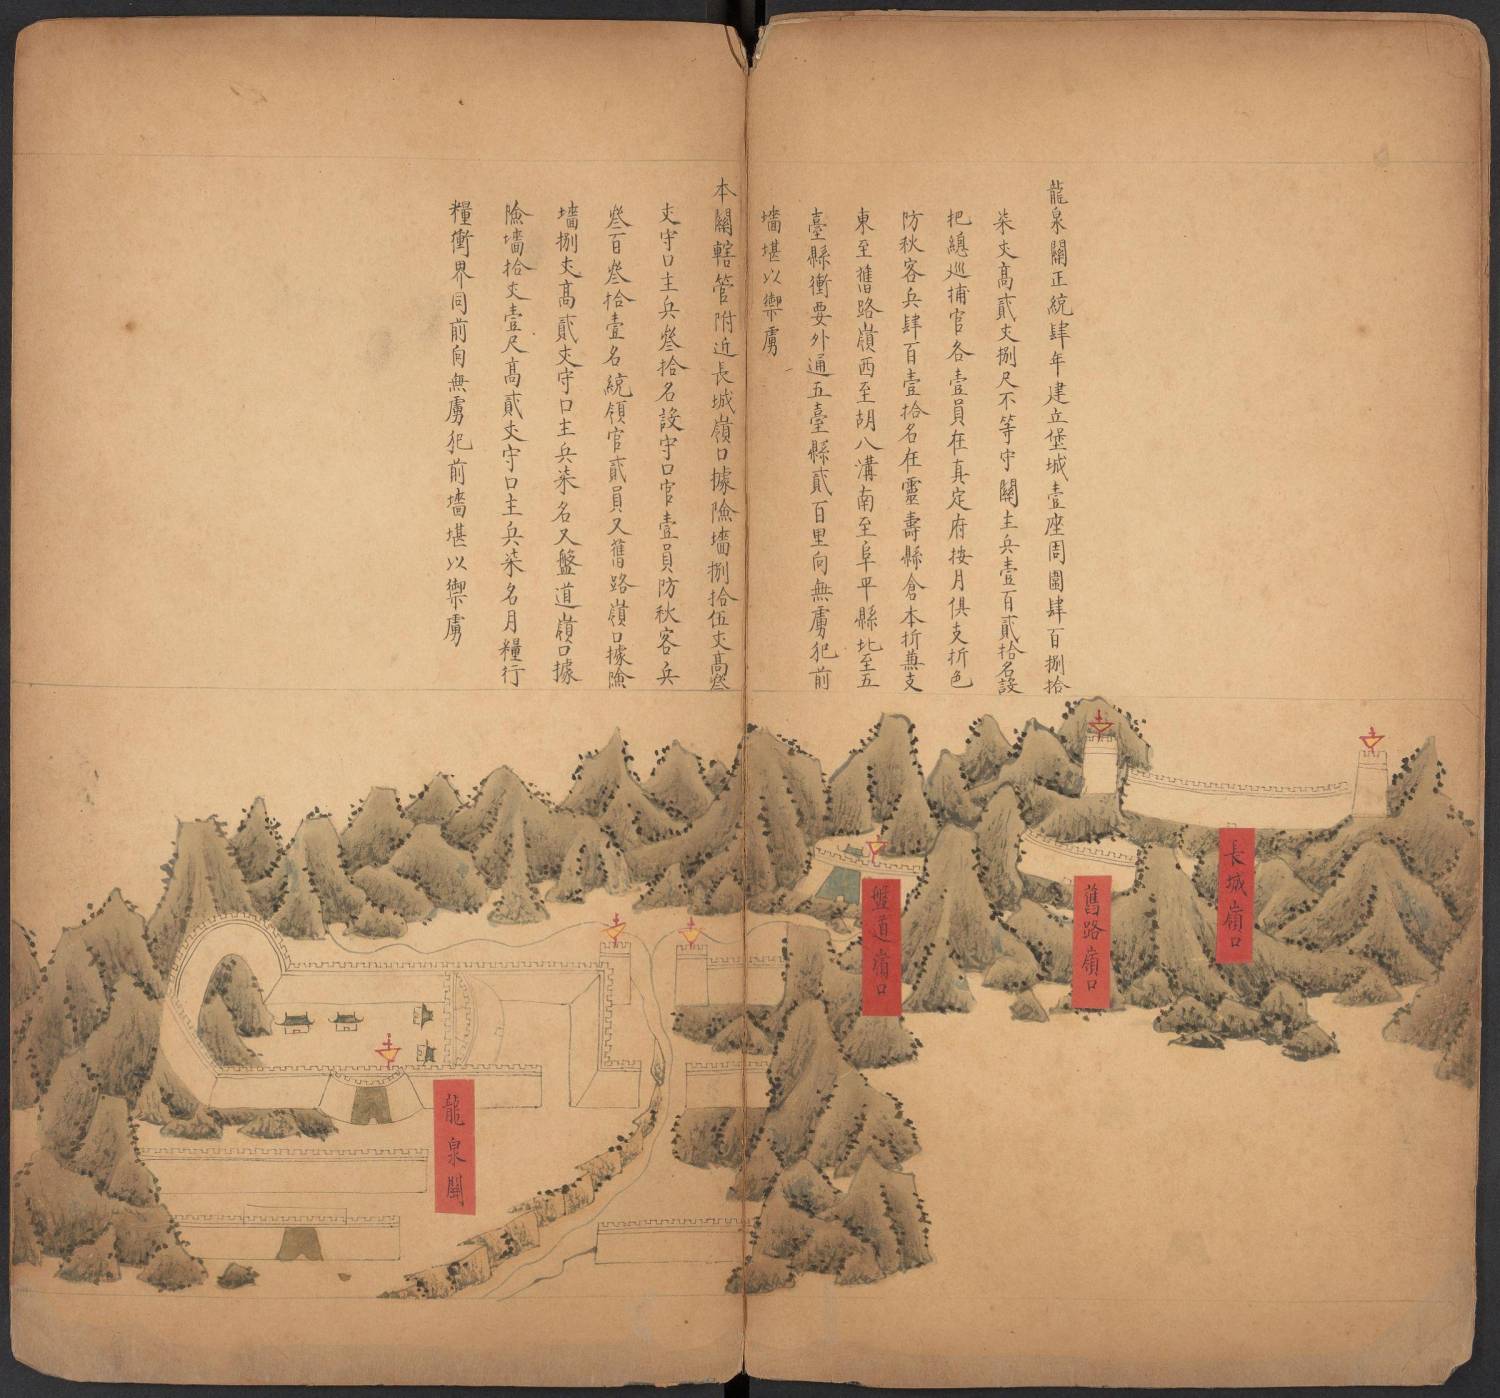 龍泉關正統肆年建立堡城壹座周圍肆百捌拾
柒丈高貳丈捌尺不等守關主兵壹百貳拾名設
把總巡捕官各壹員在真定府按月俱支折色
防秋客兵肆百壹拾名在靈壽縣倉本折兼支
東至舊路嶺西至胡八溝南至阜平縣北至五
臺縣衝要外通五臺縣貳百里向無虜犯前
墻堪以禦虜
本關轄管附近長城嶺口據險墻捌拾伍丈高叁
丈守口主兵叁拾名設守口官壹員防秋客兵
叁百叁拾壹名統領官貳員又舊路嶺口據險
墻捌丈高貳丈守口主兵柒名又盤道嶺口據
險墻拾丈壹尺高貳丈守口主兵柒名月糧行
糧衝界同前向無虜犯前墻堪以禦虜
長城嶺口
舊路嶺口
盤道嶺口
龍泉關